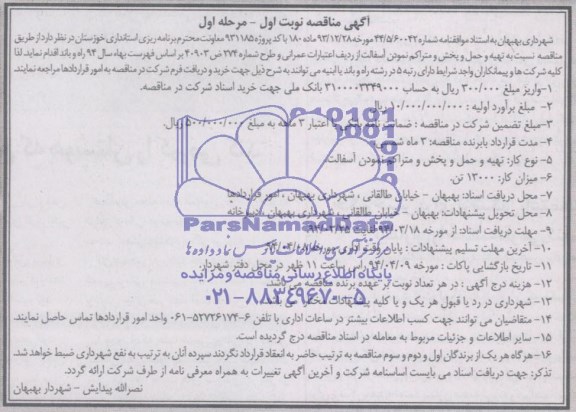 آگهی مناقصه نوبت اول - مرحله اول
شهرداری بهبهان به استناد موافقتنامه شماره ۴۴/۵/۶۰۰۴۲ مورخه ۹۲/۱۲/۲۸ ماده ۱۸۰ با کد پروژه ۹۳۱۱۸۵ معاونت محترم برنامه ریزی استانداری خوزستان در نظر دارد از طریق
مناقصه نسبت به تهیه و حمل و پخش و متراکم نمودن آسفالت از ردیف اعتبارات عمرانی و طرح شماره ۲۷۴ ص ۴۰۹۰۳ بر اساس فهرست بهاء سال ۹۴ راه و باند اقدام نماید. لذا
کلیه شرکت ها و پیمانکاران واجد شرایط دارای رتبه ۵ در رشته راه و باند یا ابنیه می توانند به شرح ذیل جهت خرید و دریافت فرم شرکت در مناقصه به امور قراردادها مراجعه نمایند.
۱- واریز مبلغ ۳۰۰/۰۰۰ ریال به حساب ۳۱۰۰۰۰۳۳۴۹۰۰۰ بانک ملی جهت خرید اسناد شرکت در مناقصه.
۲- مبلغ برآورد اولیه : ۱۰/۰۰۰/۰۰۰/۰۰۰ ریال
۳- مبلغ تضمین شرکت در مناقصه : ضمانت نامه بانکی با اعتبار ۳ ماهه به مبلغ ۵۰۰/۰۰۰/۰۰۰ ریال
۴- مدت قرارداد با برنده مناقصه: ۳ ماه شمسی
۵- نوع کار: تهیه و حمل و پخش و متراکم نمودن آسفالت
۶- میزان کار: ۱۳۰۰۰ تن.
۷- محل دریافت اسناد: بهبهان - خیابان طالقانی ، شهرداری بهبهان ، امور قراردادها
۸- محل تحویل پیشنهادات: بهبهان - خیابان طالقانی ، شهرداری بهبهان ، دبیرخانه
۹- مهلت دریافت اسناد: از مورخه ۹۴/۰۳/۱۸ لغایت
۱۰- آخرین مهلت تسلیم پیشنهادات : پایان وقت اداری مورخه
۱۱- تاریخ بازگشایی پاکات : مورخه ۹۴/۰۴/۰۹ راس ساعت ۱۱ ظهر در محل دفتر شهردار.
۱۲- هزینه درج آگهی : در هر تعداد نوبت بر عهده برنده مناقصه می باشد.
۱۳- شهرداری در رد یا قبول هر یک و یا کلیه پیشنهادات مختار می باشد.
۱۴- متقاضیان می توانند جهت کسب اطلاعات بیشتر در ساعات اداری با تلفن ۶-۵۲۷۲۶۱۷۴-۰۶۱ واحد امور قراردادها تماس حاصل نمایند.
۱۵- سایر اطلاعات و جزئیات مربوط به معامله در اسناد مناقصه درج گردیده است.
۱۶- هرگاه هر یک از برندگان اول و دوم و سوم مناقصه به ترتیب حاضر به انعقاد قرارداد نگردند سپرده آنان به ترتیب به نفع شهرداری ضبط خواهد شد.
تذکر: جهت دریافت اسناد می بایست اساسنامه شرکت و آخرین آگهی تغییرات به همراه معرفی نامه از طرف شرکت ارائه گردد.
نصرالله پیدایش - شهردار بهبهان
ParsNamadData
پایگاه اطلاع رسانی مناقصه و مزایده
۰۲۱-۸۸۳۴۹۶۷۰-۵